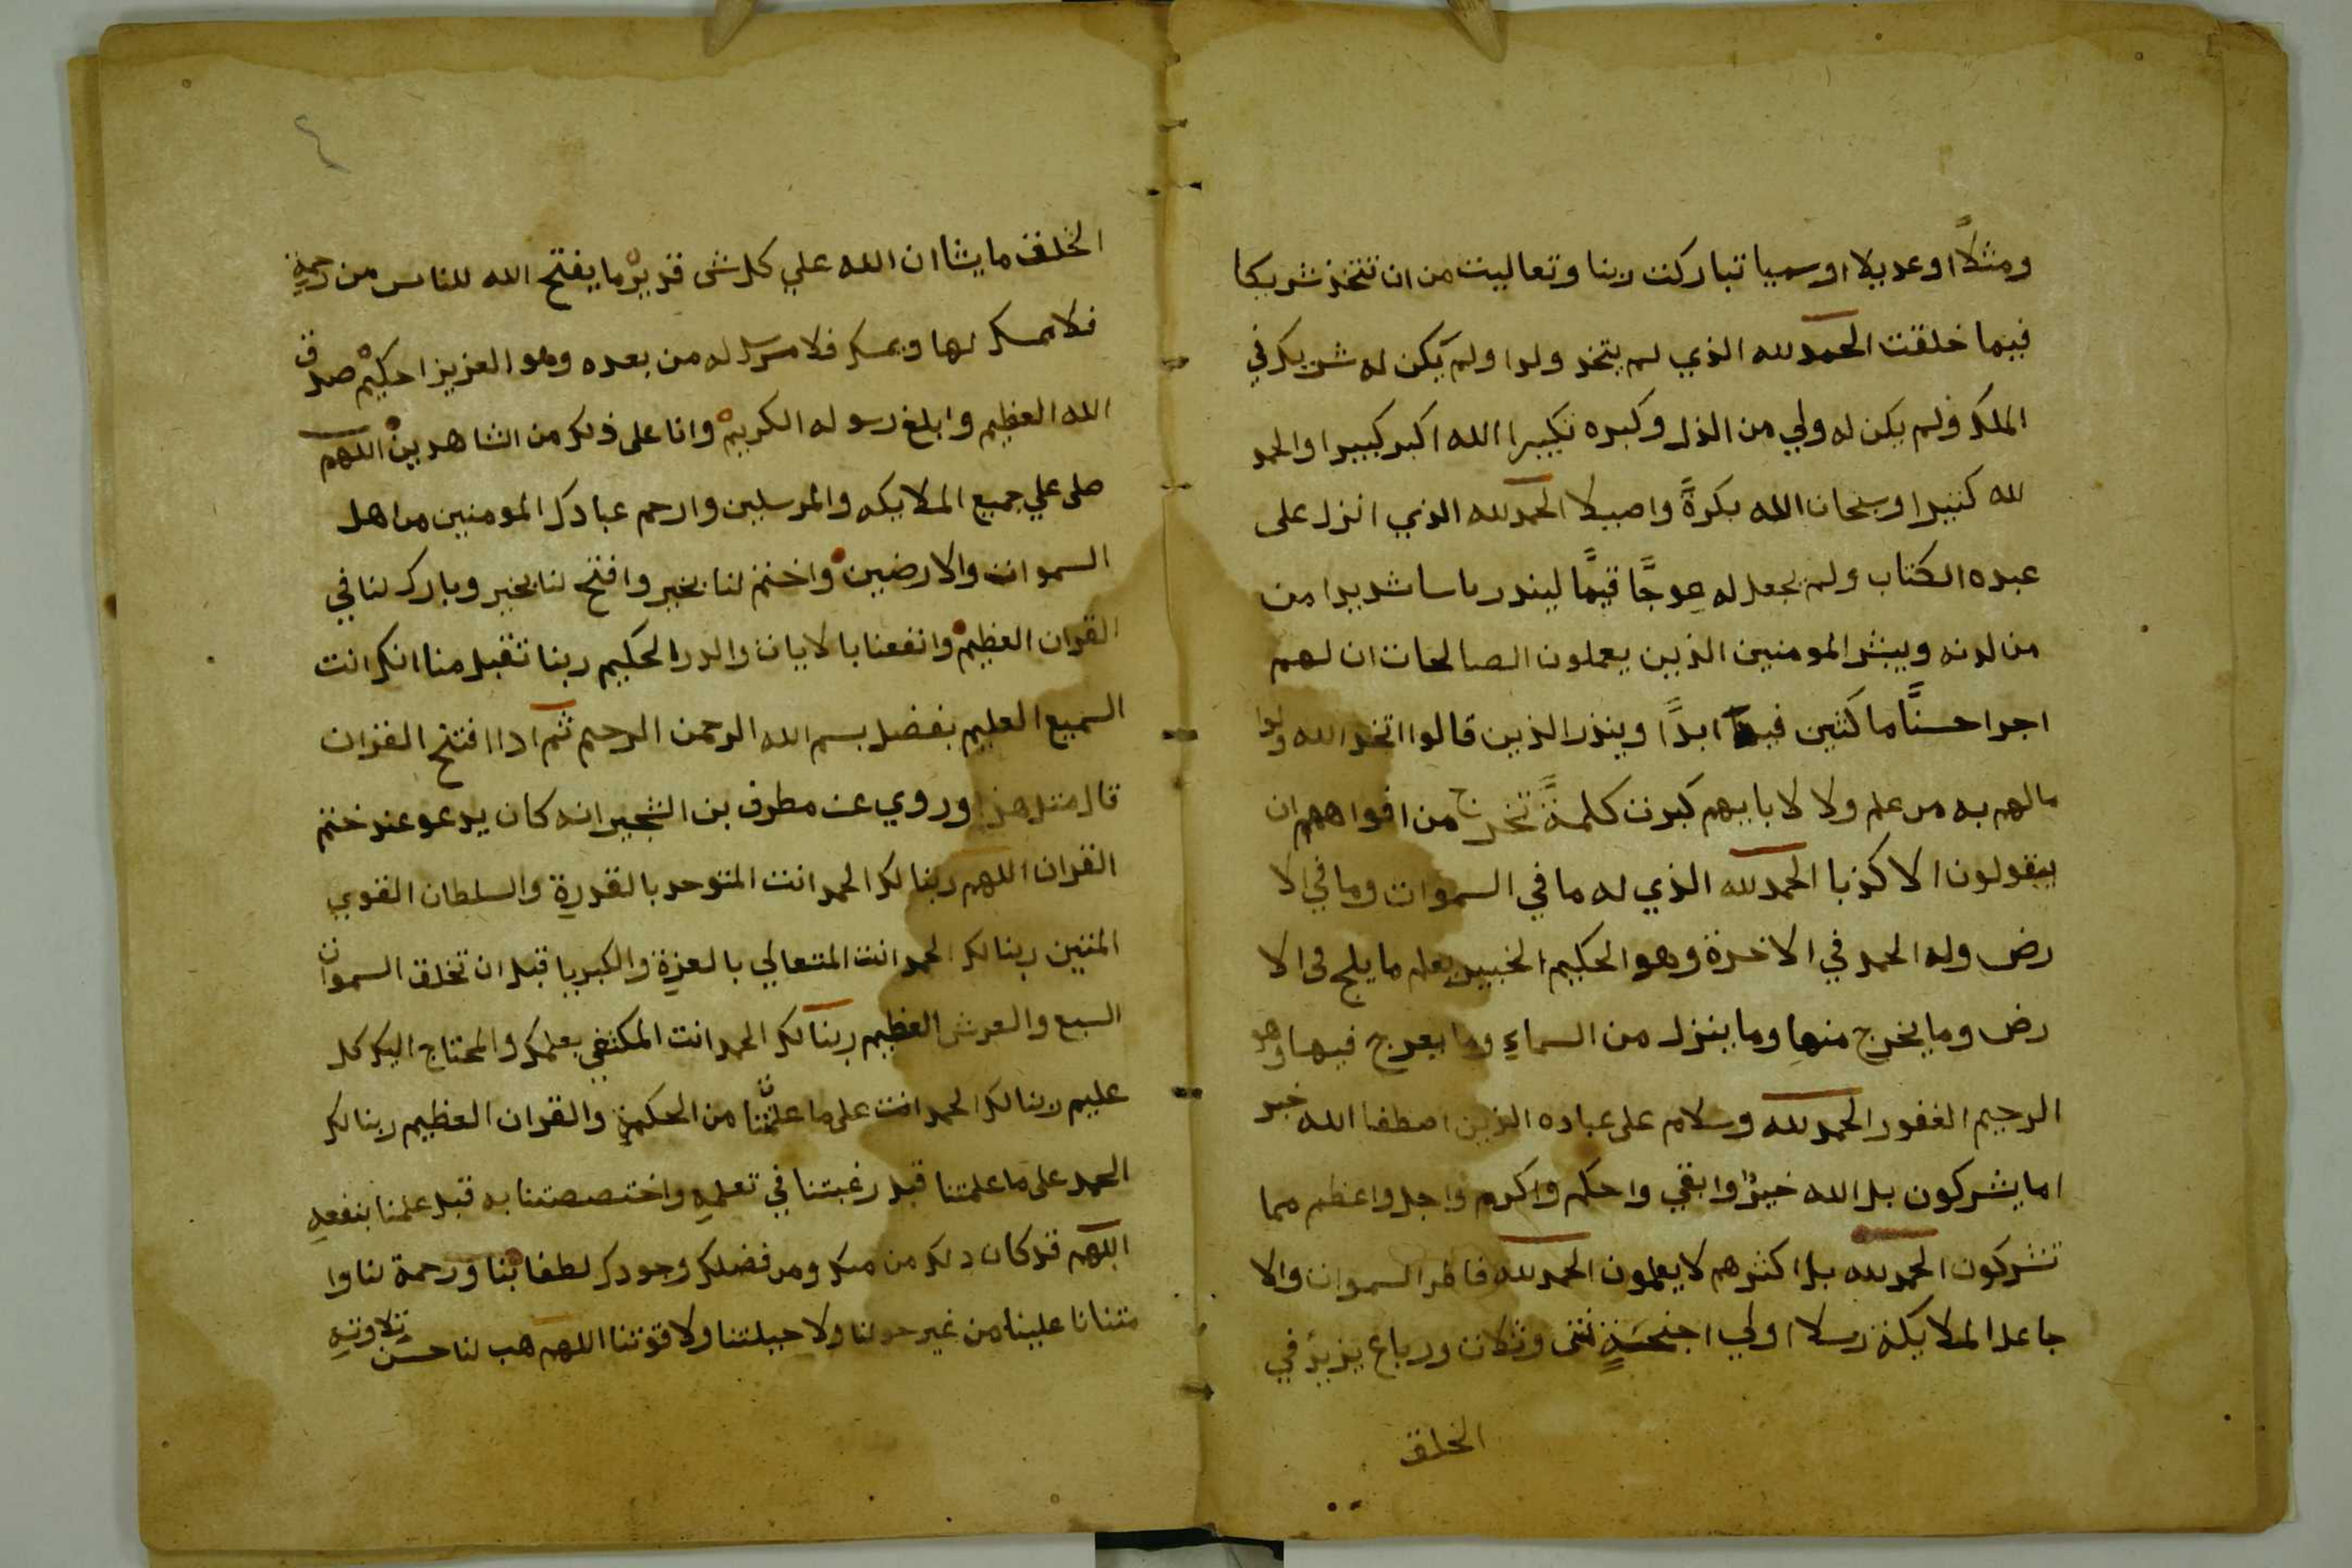 ومثلاً اوعديلا اوسميا تباركت ربنا وتعاليت من ان تتخذ شريكا
فيما خلقت الحمد لله الذي لم يتخذ ولدا ولم يكن له شريك في
الملك ولم يكن له ولي من الذل وكبره تكبيرا الله اكبر كبيرا والحمد
لله كثيرا وسبحان الله بكرةً واصيلا الحمد لله الذي انزل على
عبده الكتاب ولم يجعل له عوجًا قيمًا لينذر باسا شديدا من
من لدنه ويبشر المومنين الذين يعملون الصالحات ان لهم
اجرا حسنًا ماكثين فيه ابدًا وينذر الذين قالوا اتخذ الله ولدا
مالهم به من علم ولا لابايهم كبرت كلمةً تخرج من افواههم ان
يقولون الا كذبا الحمد لله الذي له ما في السموات وما في الا
رض وله الحمد في الاخرة وهو الحكيم الخبير يعلم ما يلج في الا
رض وما يخرج منها وما ينزل من السماء وما يعرج فيها وهو
الرحيم الغفور الحمد لله وسلام على عباده الذين اصطفا الله خير
اما يشركون بل الله خيرٌ وابقي واحكم واكرم واجل واعظم مما
تشركون الحمد لله بل اكثرهم لا يعلمون الحمد لله فاطر السموات والا
جاعل الملايكة رسلا اولي اجنحةٍ مثنى وثلاث ورباع يزيد في
الخلق
الخلق ما يشا ان الله علي كل شى قدير ما يفتح الله للناس من رحمةٍ
فلا ممسك لها ويمسك فلا مرسل له من بعده وهو العزيز احكيم صدق
الله العظيم وابلغ رسوله الكريم وانا على ذلك من الشاهدين اللهم
صلى علي جميع الملايكه والمرسلين وارحم عبادك المومنين من اهل
السموات والارضين واختم لنا بخير وافتح لنا بخير وبارك لنا في
القران العظيم وانفعنا بالايات والدر الحكيم ربنا تقبل منا انك انت
السميع العليم بفضل بسم الله الرحمن الرحيم ثم اداافتتح القران
قال مثل هذا وروي عن مطرف بن الشجير انه كان يدعو عند ختم
القران اللهم ربنا لك الحمد انت المتوحد بالقدرة والسلطان القوي
المتين ربنا لك الحمد انت المتعالي بالعزة والكبريا قبل ان تخلق السموات
السبع والعرش العظيم ربنا لك الحمد انت المكتفي بعلمك والمحتاج اليك كل
عليم ربنا لك الحمد انت على ما علمتنا من الحكمة والقران العظيم ربنا لك
الحمد على ما علمتنا قبل رغبتنا في تعلمهِ واختصصتنا به قبل علمنا بنفعهِ
اللهم قد كان دلك من منك ومن فضلك وجودك لطفا بنا ورحمة لنا وا
متنانا علينا من غير حولنا ولا حيلتنا ولا قوتنا اللهم هب لنا حسن تلاوتهِ